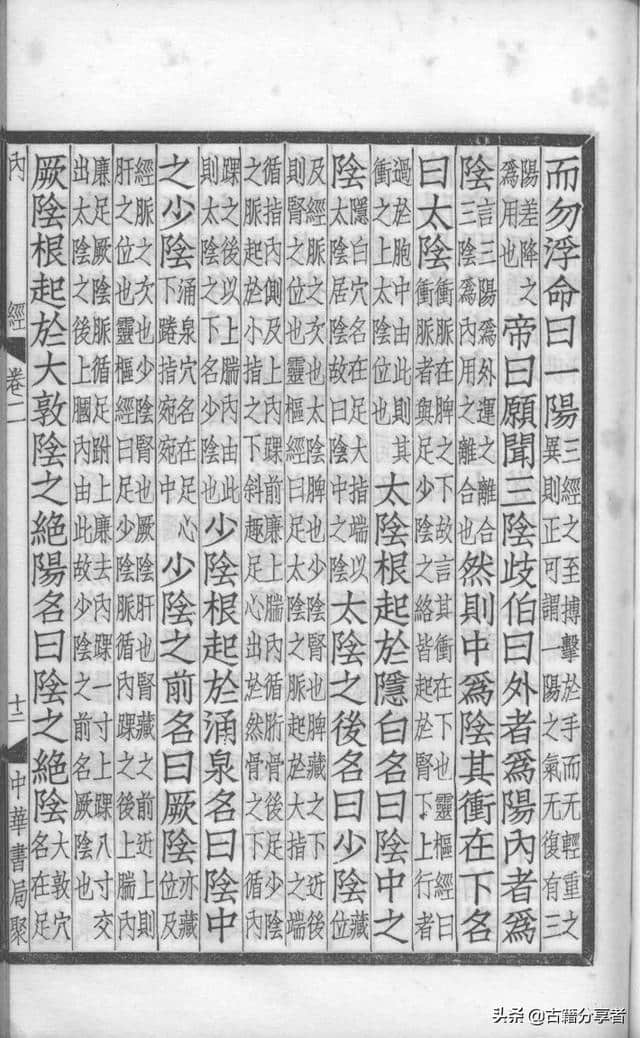 而勿浮命曰一陽三經之至搏擊於手而无輕重之異則正可謂一陽之氣无復有三
陽差降之爲用也帝曰願聞三陰歧伯曰外者爲陽內者爲
陰言三陽爲外運之離合三陰爲內用之離合也然則中爲陰其衝在下名
曰太陰衝脈在脾之下故言其衝在下也靈樞經曰衝脈者與足少陰之絡皆起於腎下上行者
過於胞中由此則其衝之上太陰位也太陰根起於隱白名曰陰中之
陰隱白穴名在足大指端以太陰居陰故曰陰中之陰太陰之後名曰少陰藏位
及經脈之次也太陰脾也少陰腎也脾藏之下近後則腎之位也靈樞經曰足太陰之脈起於大指之端
循指內側及上內踝前廉上腨內循胻骨後足少陰之脈起於小指之下斜趣足心出於然骨之下循內
踝之後以上腨內由此則太陰之下名少陰也少陰根起於涌泉名曰陰中
之少陰涌泉穴名在足心下踡指宛宛中少陰之前名曰厥陰亦藏位及
經脈之次也少陰腎也厥陰肝也腎藏之前近上則肝之位也靈樞經曰足少陰脈循內踝之後上腨內
廉足厥陰脈循足跗上廉去內踝一寸上踝八寸交出太陰之後上膕內由此故少陰之前名厥陰也
厥陰根起於大敦陰之絕陽名曰陰之絕陰大敦穴名在足
內經 卷二 十二 中華書局聚
头条 @古籍分享者